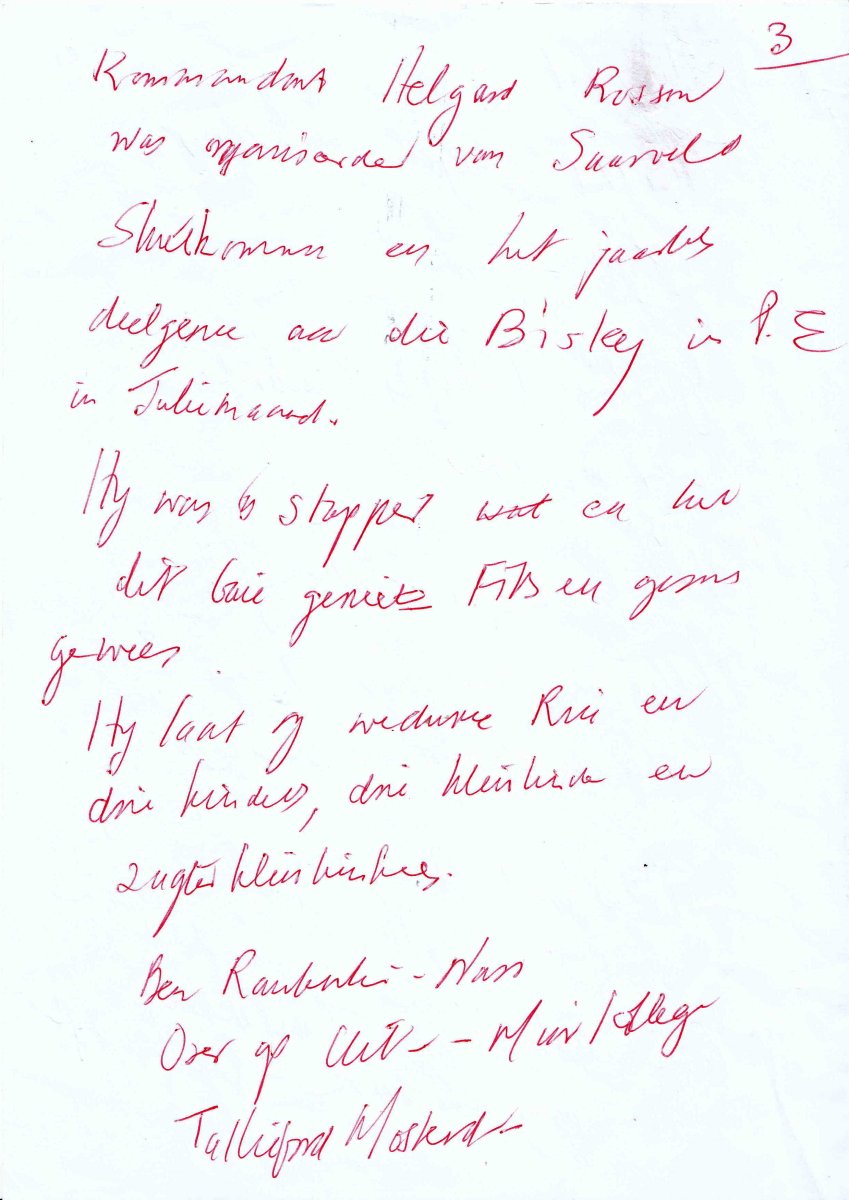 3
Kommandant Helgard Rossouw
was organiseerder van Saarveld
Skietkommando en het jaarliks
deelgenee aan die Bisley in P.E
in Juliemaand.
Hy was 'n stapper wat en het
dit baie geniet Fiks en gesond
gewees
Hy laat sy weduwee Rrie en
drie kinders, drie kleinkinders en
2 agterkleinkinders.
Ben Raubenheimer - Nass
Oser op Uit - - Muir Kollege
Talliefred Mosterd